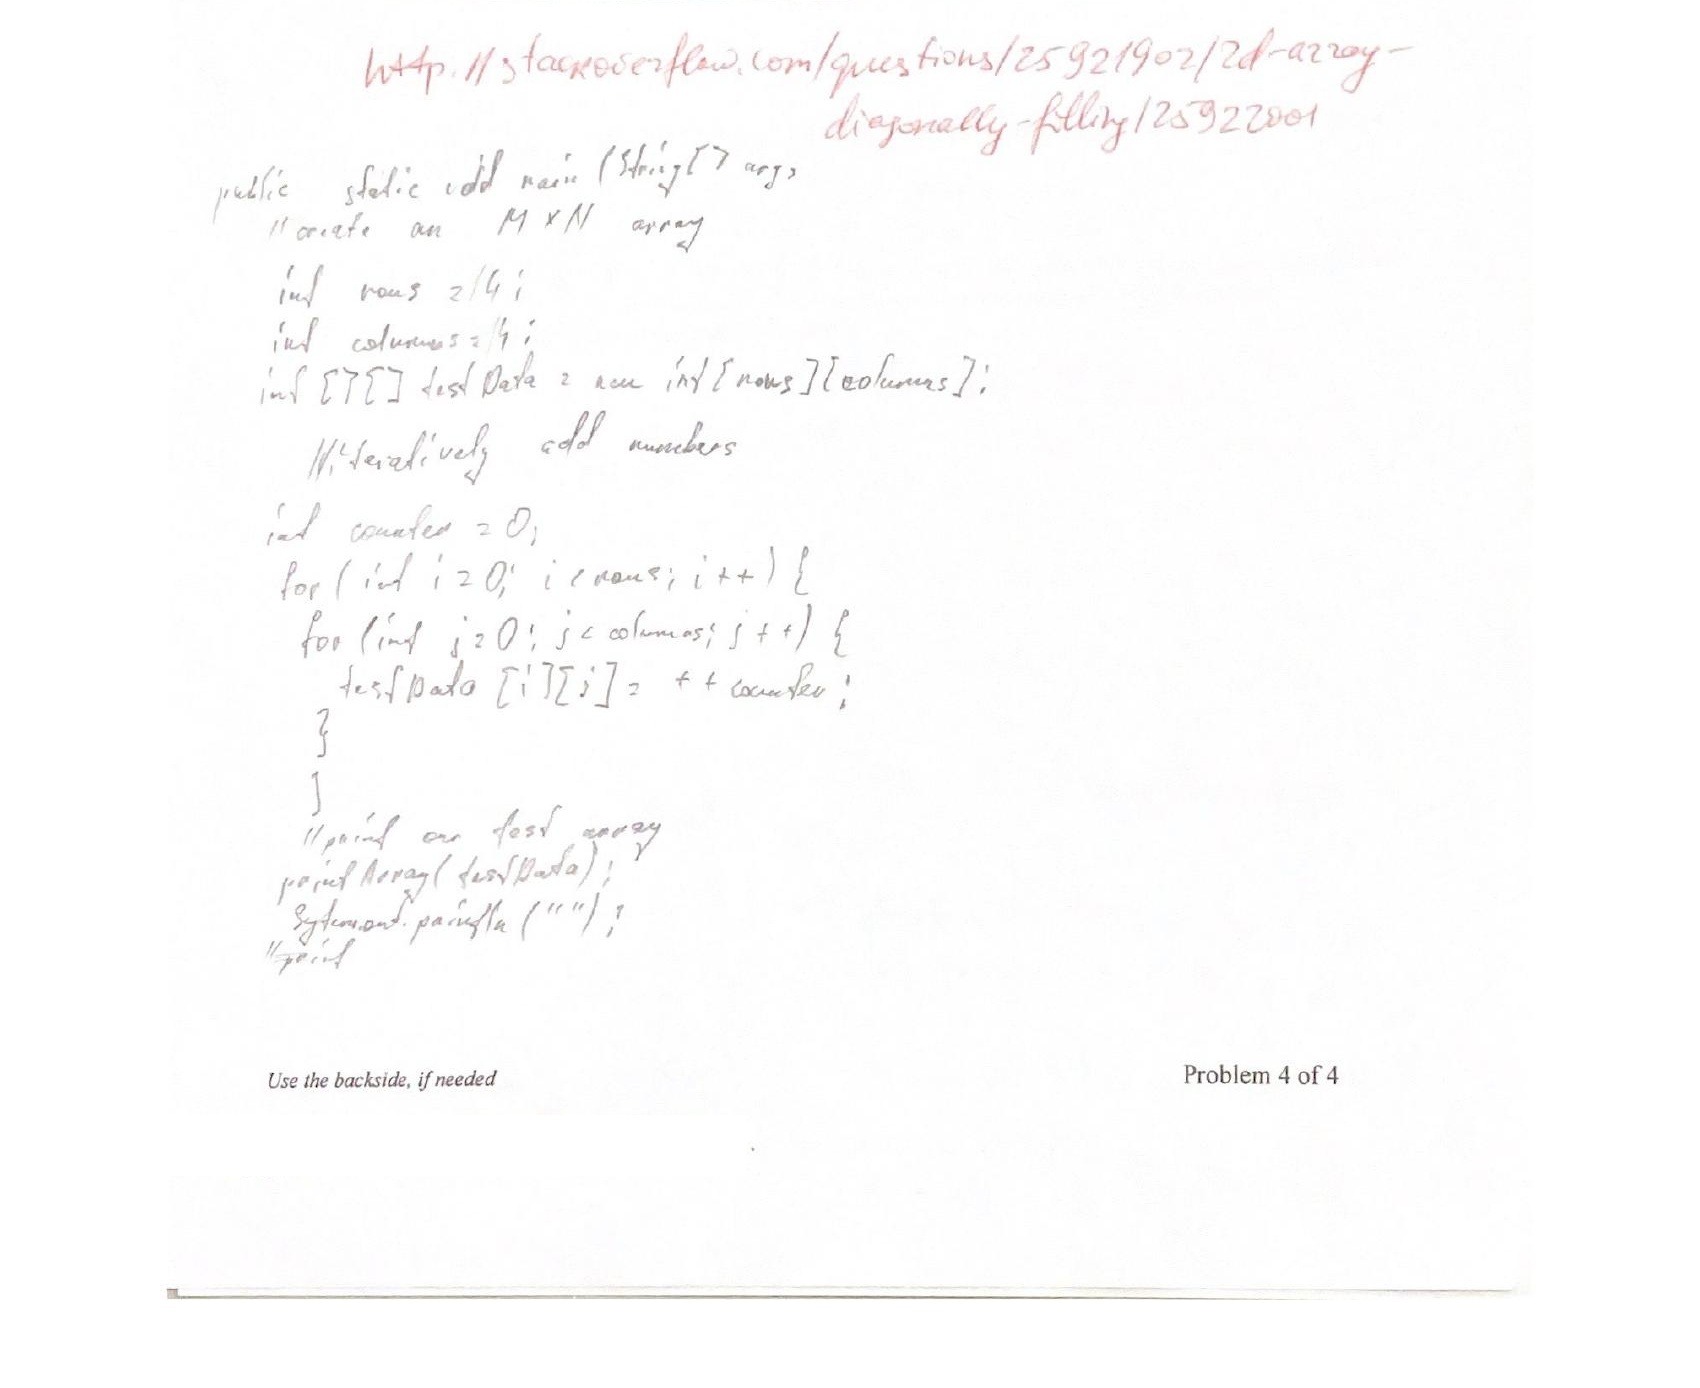 http://stackoverflow.com/questions/25921902/2d-array-
diagonally-filling/25922001
public static void main (String[] args
//create an M x N array
int rows = 4;
int columns = 4;
int [][] testData = new int[rows][columns];
//iteratively add numbers
int counter = 0;
for ( int i = 0; i < rows; i++ ) {
for (int j = 0; j < columns; j++) {
testData [i][j] = ++counter;
}
}
//print our test array
printArray( testData);
System.out.println ("");
//print
Use the backside, if needed
Problem 4 of 4